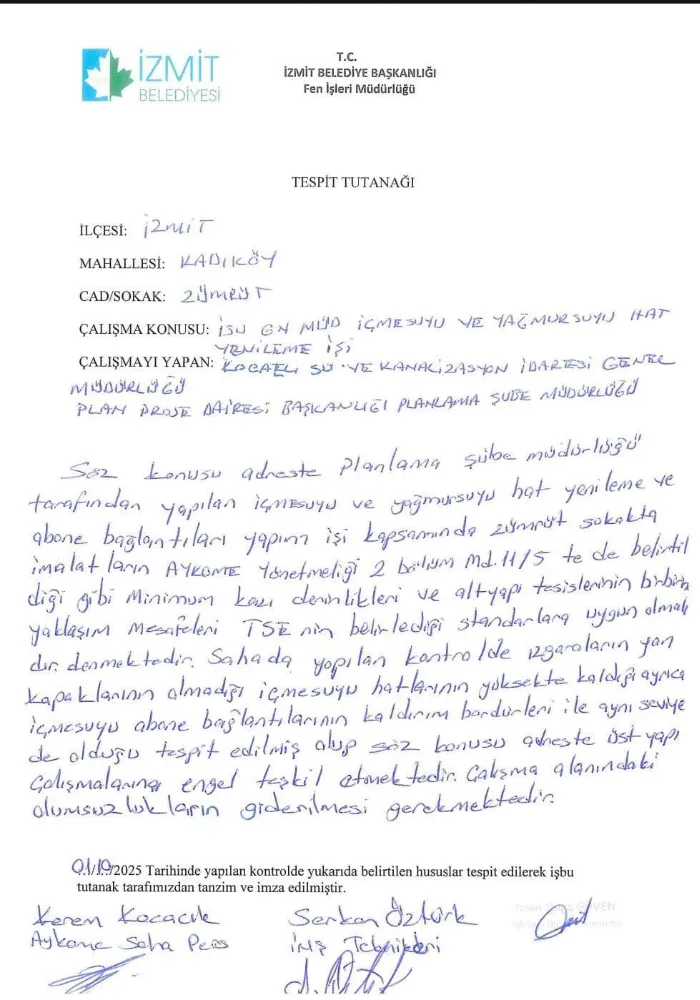 İZMİT
BELEDİYESİ
T.C.
İZMİT BELEDİYE BAŞKANLIĞI
Fen İşleri Müdürlüğü
TESPİT TUTANAĞI
İLÇESİ: İZMİT
MAHALLESİ: KADIKÖY
CAD/SOKAK: ZÜMRÜT
ÇALIŞMA KONUSU: İSU GN MÜD İÇMESUYU VE YAĞMURSUYU HAT
YENİLEME İŞİ
ÇALIŞMAYI YAPAN: KOCAELİ SU VE KANALİZASYON İDARESİ GENEL
MÜDÜRLÜĞÜ
PLAN PROJE DAİRESİ BAŞKANLIĞI PLANLAMA ŞUBE MÜDÜRLÜĞÜ
Söz konusu adreste Planlama Şube müdürlüğü
tarafından yapılan içmesuyu ve yağmursuyu hat yenileme ve
abone bağlantıları yapım işi kapsamında zümrüt sokakta
imalatların AYKOME Yönetmeliği 2 bölüm Md.11/5 te de belirtil
diği gibi Minimum kazı derinlikleri ve altyapı tesislerinin birbirine
yaklaşım Mesafeleri TSE nin belirlediği standarlara uygun olmalı
dır. denmektedir. Sahada yapılan kontrolde ızgaraların yan
kapaklarının olmadığı içmesuyu hatlarının yüksekte kaldığı ayrıca
içmesuyu abone bağlantılarının kaldırım bordürleri ile aynı seviye
de olduğu tespit edilmiş olup söz konusu adreste üst yapı
Çalışmalarına engel teşkil etmektedir. Çalışma alanındaki
olumsuzlukların giderilmesi gerekmektedir.
01/10/2025 Tarihinde yapılan kontrolde yukarıda belirtilen hususlar tespit edilerek işbu
tutanak tarafımızdan tanzim ve imza edilmiştir.
Kerem Kocacık Serkan Öztürk GÜVEN
Aykome Saha Pers İnş Teknikeri